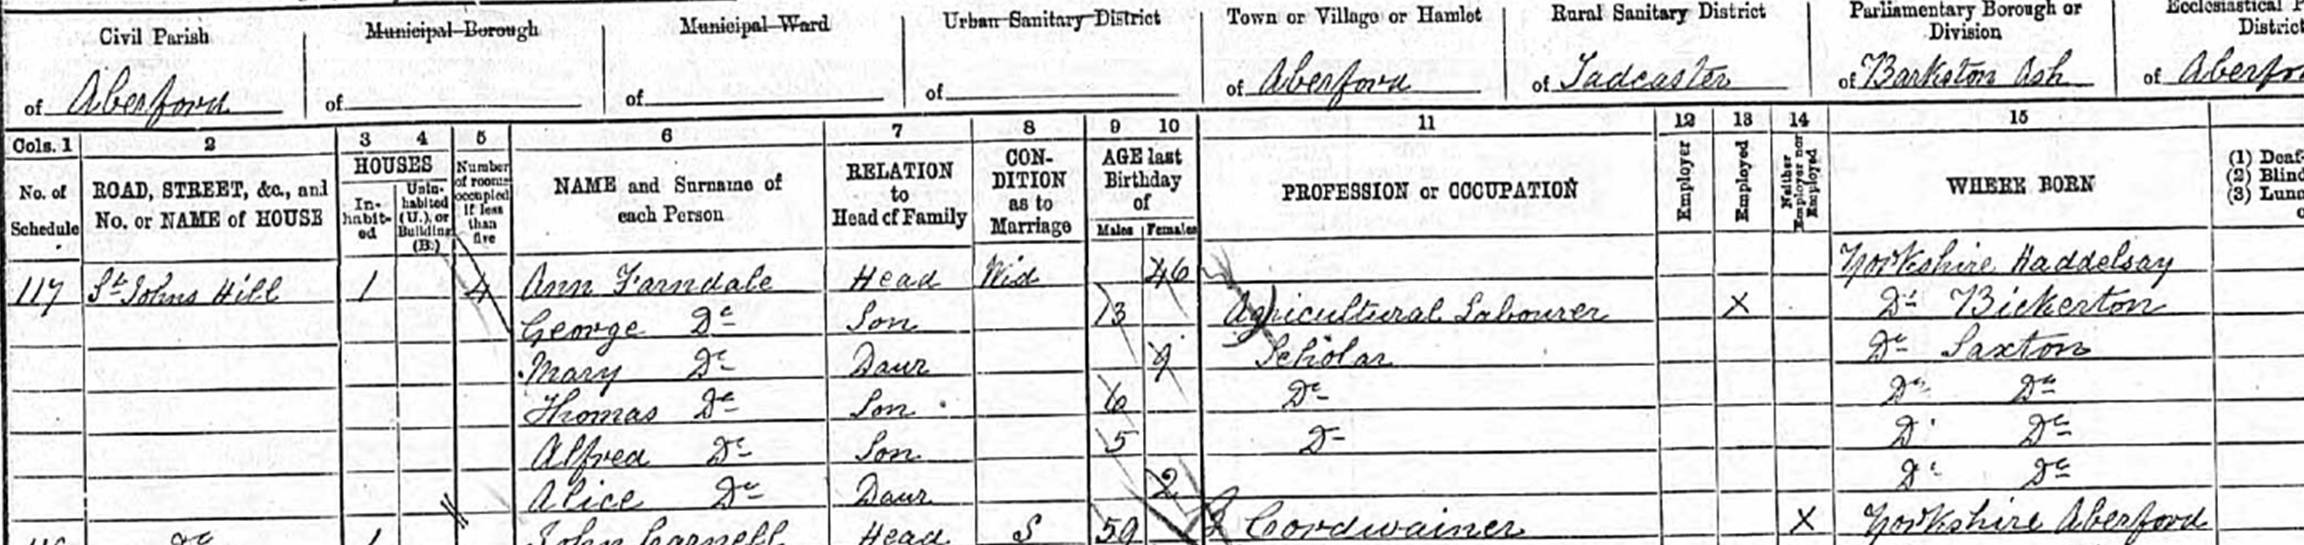 Civil Parish Municipal Borough Municipal Ward Urban Sanitary District Town or Village or Hamlet Rural Sanitary District Parliamentary Borough or Division Ecclesiastical P
District
of Aberford of of of of Aberford of Tadcaster of Barkston Ash of Aberfor
Cols. 1 2 3 4 5 6 7 8 9 10 11 12 13 14 15
No. of Schedule ROAD, STREET, &c., and No. or NAME of HOUSE HOUSES In-habit-ed Unin-habited (U.), or Building (B.) Number of rooms occupied if less than five NAME and Surname of each Person RELATION to Head of Family CON-DITION as to Marriage AGE last Birthday of Males Females PROFESSION or OCCUPATION Employer Employed Neither Employer nor Employed WHERE BORN (1) Deaf- (2) Blind (3) Luna
117 St Johns Hill 1 4 Ann Farndale Head Wid 46 Yorkshire Haddelsay
George Do Son 13 Agricultural Labourer X Do Bickerton
Mary Do Daur 9 Scholar Do Saxton
Thomas Do Son 6 Do Do Do
Alfred Do Son 5 Do Do Do
Alice Do Daur 2 Do Do
Do 1 John Head S 59 Cordwainer X Yorkshire Aberford